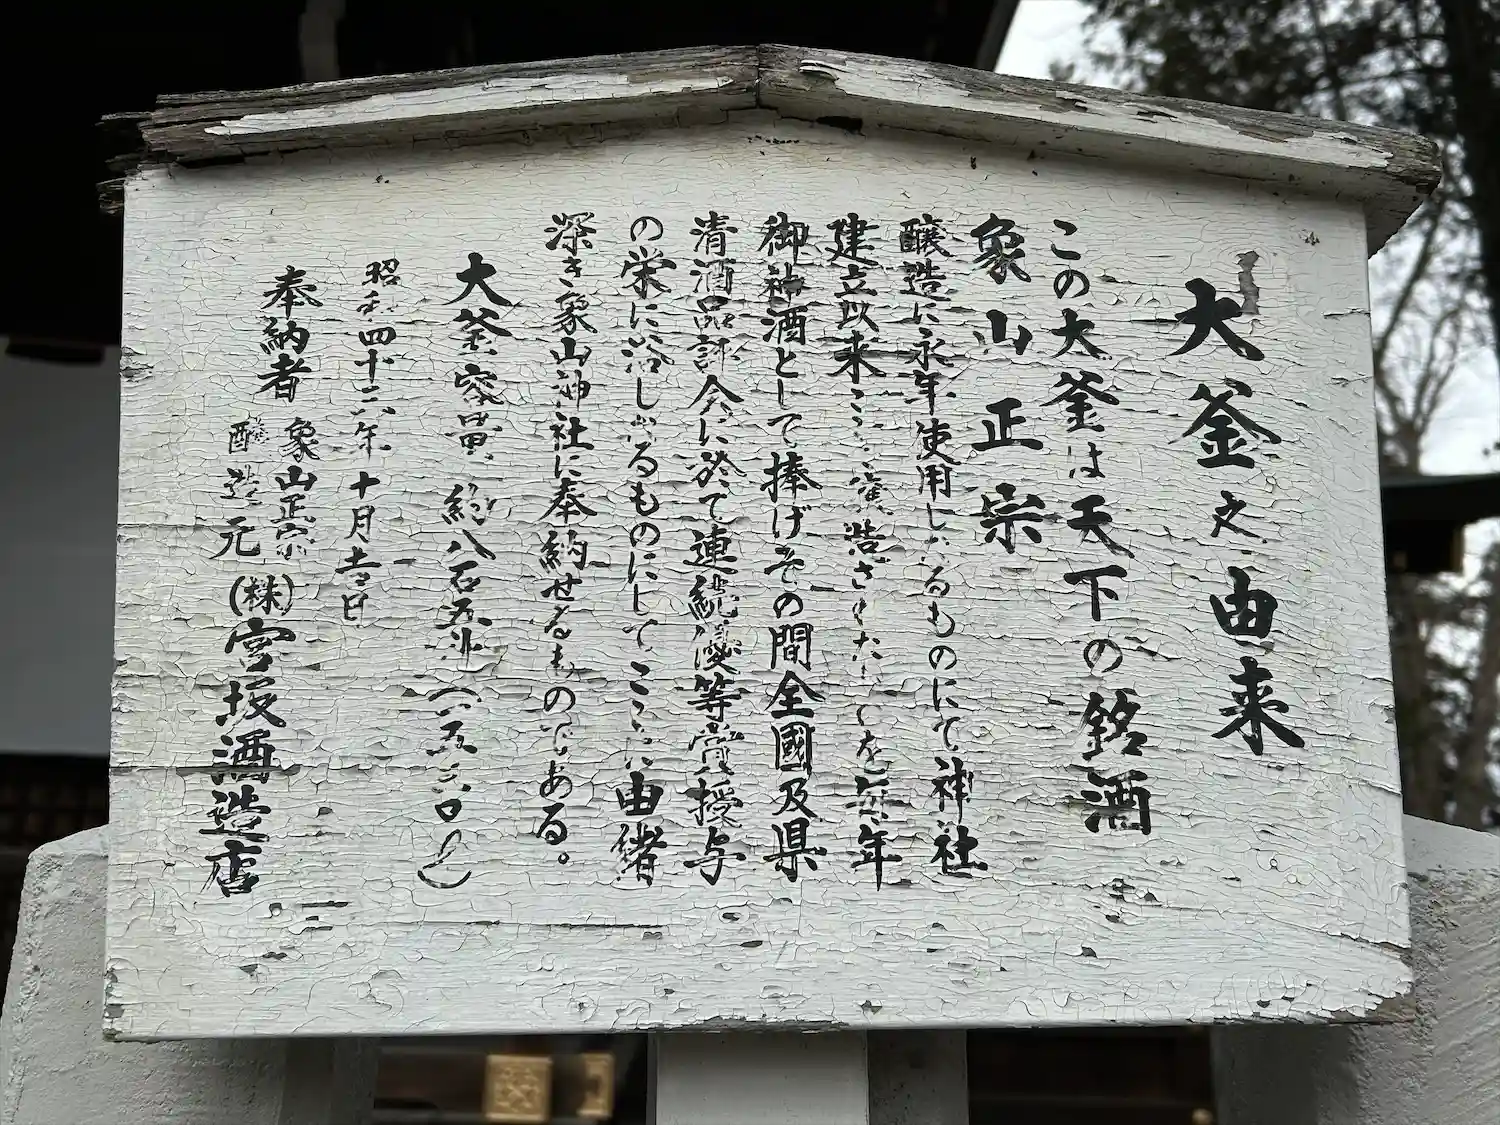 大釜之由来
この大釜は天下の銘酒
象山正宗
醸造に永年使用したるものにて神社
建立以来ここに醸造されたるを毎年
御神酒として捧げその間全國及県
清酒品評会に於て連続優等賞授与
の栄に浴したるものにしてここに由緒
深き象山神社に奉納せるものである。
大釜容量 約八石五斗
昭和四十六年十月吉日
奉納者 象山正宗
醸造元 (株)宮坂酒造店